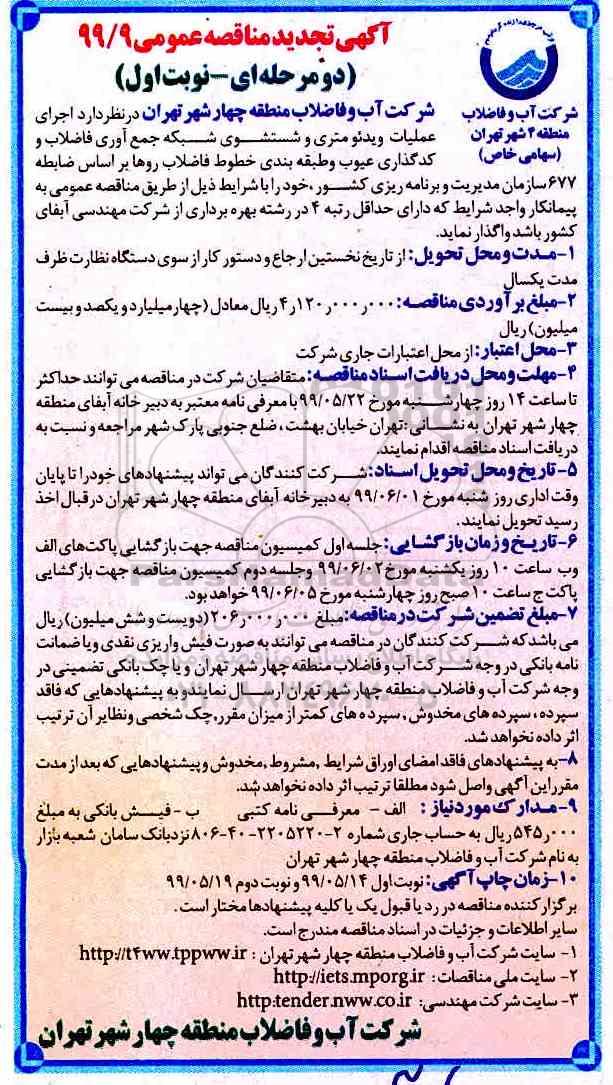 آگهی تجدید مناقصه عمومی ۹۹/۹
(دو مرحله‌ای - نوبت اول)
شرکت آب و فاضلاب
منطقه ۴ شهر تهران
(سهامی خاص)
شرکت آب و فاضلاب منطقه چهار شهر تهران در نظر دارد اجرای
عملیات ویدئو متری و شستشوی شبکه جمع آوری فاضلاب و
کدگذاری عیوب وطبقه بندی خطوط فاضلاب روها بر اساس ضابطه
۶۷۷ سازمان مدیریت و برنامه ریزی کشور ،خود را با شرایط ذیل از طریق مناقصه عمومی به
پیمانکار واجد شرایط که دارای حداقل رتبه ۴ در رشته بهره برداری از شرکت مهندسی آبفای
کشور باشد واگذار نماید.
۱-مدت و محل تحویل: از تاریخ نخستین ارجاع و دستور کار از سوی دستگاه نظارت ظرف
مدت یکسال
۲-مبلغ برآوردی مناقصه: ۴٫۱۲۰٫۰۰۰٫۰۰۰ ریال معادل (چهار میلیارد و یکصد و بیست
میلیون) ریال
۳-محل اعتبار: از محل اعتبارات جاری شرکت
۴-مهلت و محل دریافت اسناد مناقصه: متقاضیان شرکت در مناقصه می توانند حداکثر
تا ساعت ۱۴ روز چهارشنبه مورخ ۹۹/۰۵/۲۲ با معرفی نامه معتبر به دبیر خانه آبفای منطقه
چهار شهر تهران به نشانی :تهران خیابان بهشت ، ضلع جنوبی پارک شهر مراجعه و نسبت به
دریافت اسناد مناقصه اقدام نمایند.
۵-تاریخ و محل تحویل اسناد: شرکت کنندگان می تواند پیشنهادهای خود را تا پایان
وقت اداری روز شنبه مورخ ۹۹/۰۶/۰۱ به دبیر خانه آبفای منطقه چهار شهر تهران در قبال اخذ
رسید تحویل نمایند.
۶-تاریخ و زمان بازگشایی: جلسه اول کمیسیون مناقصه جهت بازگشایی پاکت‌های الف
وب ساعت ۱۰ روز یکشنبه مورخ ۹۹/۰۶/۰۲ وجلسه دوم کمیسیون مناقصه جهت بازگشایی
پاکت ج ساعت ۱۰ صبح روز چهارشنبه مورخ ۹۹/۰۶/۰۵ خواهد بود.
۷-مبلغ تضمین شرکت در مناقصه: مبلغ ۲۰۶٫۰۰۰٫۰۰۰ (دویست و شش میلیون) ریال
می باشد که شرکت کنندگان در مناقصه می توانند به صورت فیش واریزی نقدی ویا ضمانت
نامه بانکی در وجه شرکت آب و فاضلاب منطقه چهار شهر تهران و یا چک بانکی تضمینی در
وجه شرکت آب و فاضلاب منطقه چهار شهر تهران ارسال نمایند و به پیشنهادهایی که فاقد
سپرده ، سپرده های مخدوش ، سپرده های کمتر از میزان مقرر,چک شخصی ونظایر آن ترتیب
اثر داده نخواهد شد.
۸-به پیشنهادهای فاقد امضای اوراق شرایط ,مشروط ,مخدوش و پیشنهادهایی که بعد از مدت
مقرر این آگهی واصل شود مطلقا ترتیب اثر داده نخواهد شد.
۹-مدارک مورد نیاز : الف - معرفی نامه کتبی ب - فیش بانکی به مبلغ
۵۴۵٫۰۰۰ ریال به حساب جاری شماره ۲-۲۲۰۵۲۲۰-۴۰-۸۰۶ نزد بانک سامان شعبه بازار
به نام شرکت آب و فاضلاب منطقه چهار شهر تهران
۱۰-زمان چاپ آگهی: نوبت اول ۹۹/۰۵/۱۴ و نوبت دوم ۹۹/۰۵/۱۹
برگزار کننده مناقصه در رد یا قبول یک یا کلیه پیشنهادها مختار است.
سایر اطلاعات و جزئیات در اسناد مناقصه مندرج است.
۱- سایت شرکت آب و فاضلاب منطقه چهار شهر تهران : http://t۴ww.tppww.ir
۲- سایت ملی مناقصات : http://iets.mporg.ir
۳- سایت شرکت مهندسی: http:tender.nww.co.ir
شرکت آب و فاضلاب منطقه چهار شهر تهران